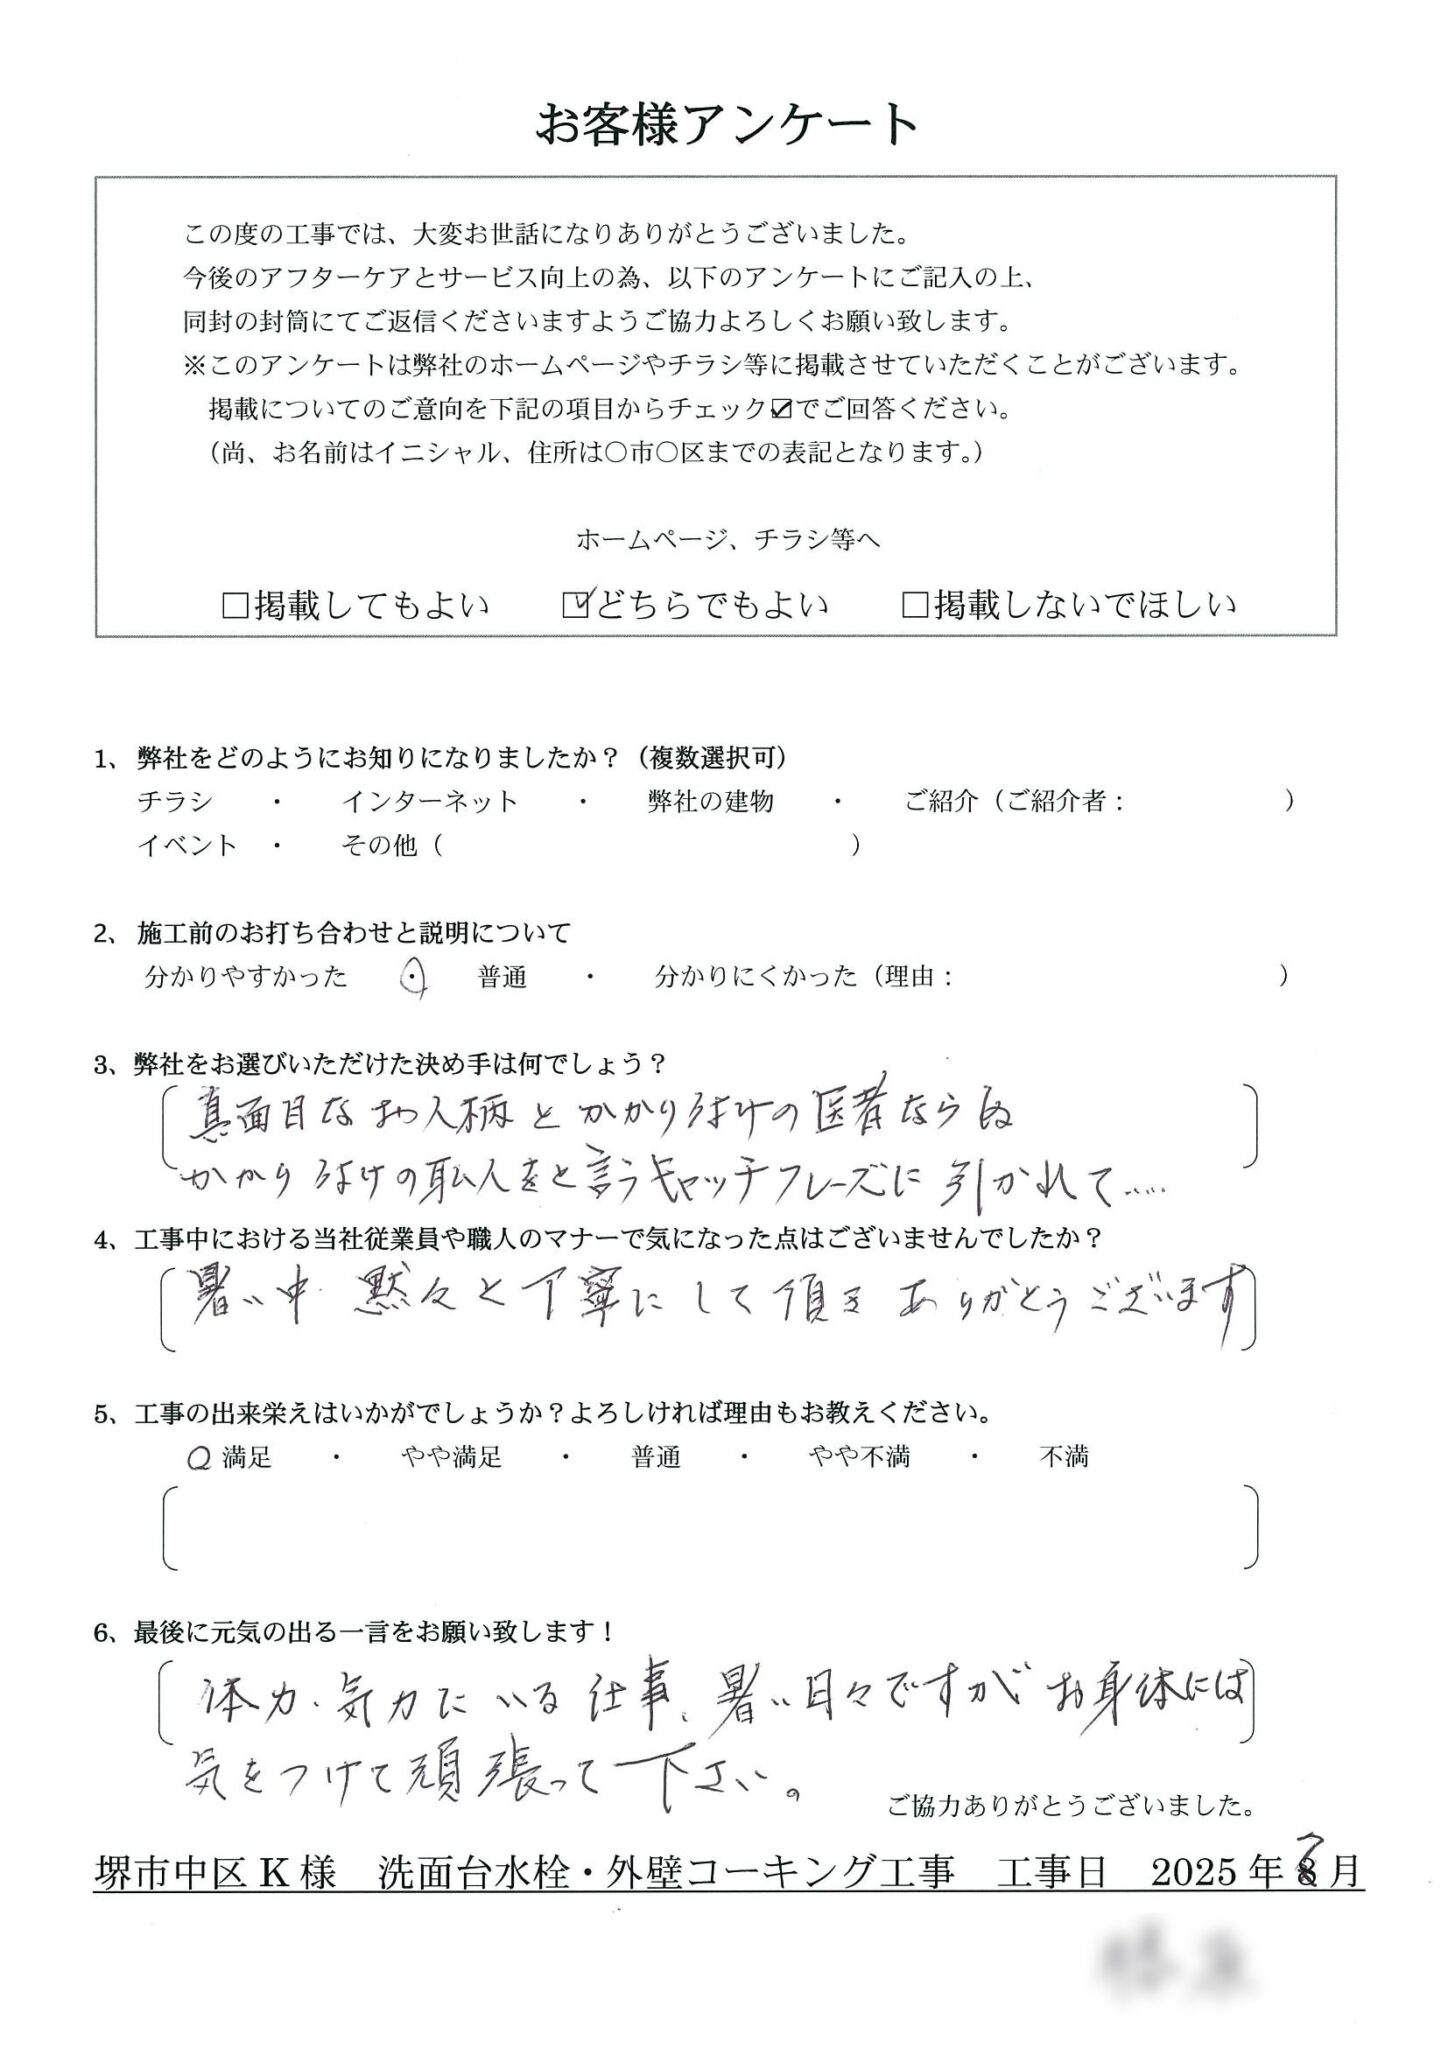 お客様アンケート
この度の工事では、大変お世話になりありがとうございました。
今後のアフターケアとサービス向上の為、以下のアンケートにご記入の上、
同封の封筒にてご返信くださいますようご協力よろしくお願い致します。
※このアンケートは弊社のホームページやチラシ等に掲載させていただくことがございます。
掲載についてのご意向を下記の項目からチェック☑でご回答ください。
（尚、お名前はイニシャル、住所は〇市〇区までの表記となります。）
ホームページ、チラシ等へ
□掲載してもよい ☑どちらでもよい □掲載しないでほしい
1、弊社をどのようにお知りになりましたか？（複数選択可）
チラシ ・ インターネット ・ 弊社の建物 ・ ご紹介（ご紹介者： ）
イベント ・ その他（ ）
2、施工前のお打ち合わせと説明について
分かりやすかった ・ 普通 ・ 分かりにくかった（理由： ）
3、弊社をお選びいただけた決め手は何でしょう？
真面目なお人柄とかかりつけの医者ならぬ
かかりつけの職人をと言うキャッチフレーズに引かれて……
4、工事中における当社従業員や職人のマナーで気になった点はございませんでしたか？
暑い中 黙々と丁寧にして頂き ありがとうございます
5、工事の出来栄えはいかがでしょうか？よろしければ理由もお教えください。
○満足 ・ やや満足 ・ 普通 ・ やや不満 ・ 不満
6、最後に元気の出る一言をお願い致します！
体力・気力にいる仕事、暑い日々ですがお身体には
気をつけて頑張って下さい。
ご協力ありがとうございました。
堺市中区 K 様 洗面台水栓・外壁コーキング工事 工事日 2025 年 7 月